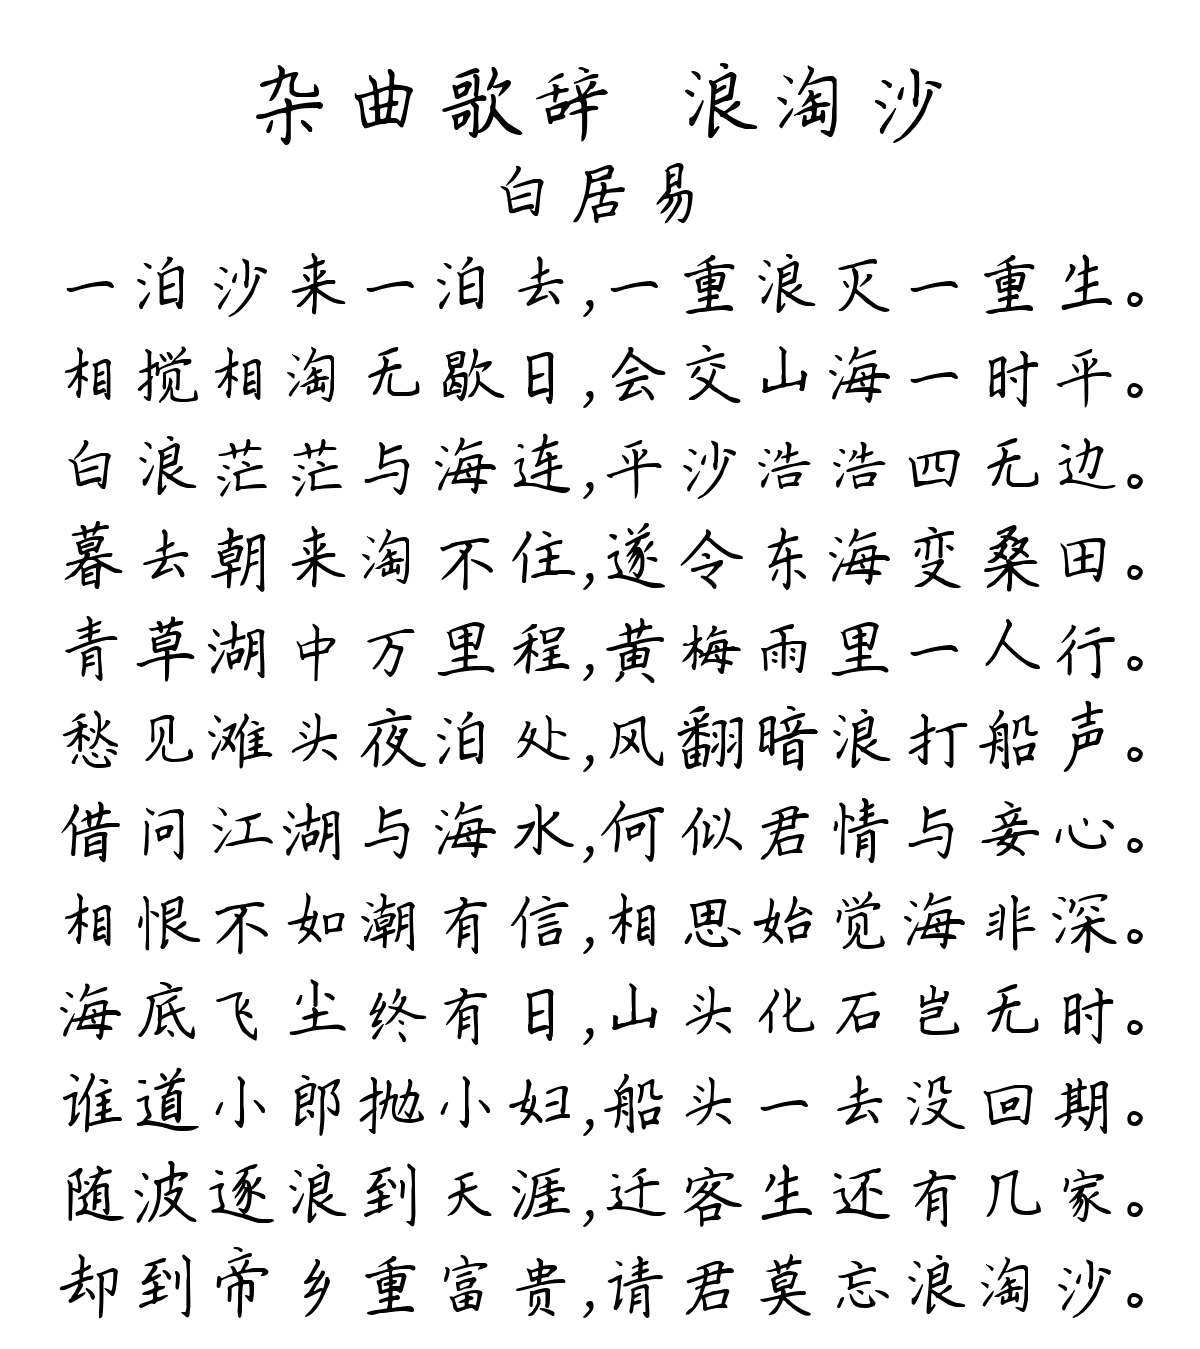 杂曲歌辞 浪淘沙
白居易
一泊沙来一泊去,一重浪灭一重生。
相搅相淘无歇日,会交山海一时平。
白浪茫茫与海连,平沙浩浩四无边。
暮去朝来淘不住,遂令东海变桑田。
青草湖中万里程,黄梅雨里一人行。
愁见滩头夜泊处,风翻暗浪打船声。
借问江湖与海水,何似君情与妾心。
相恨不如潮有信,相思始觉海非深。
海底飞尘终有日,山头化石岂无时。
谁道小郎抛小妇,船头一去没回期。
随波逐浪到天涯,迁客生还有几家。
却到帝乡重富贵,请君莫忘浪淘沙。